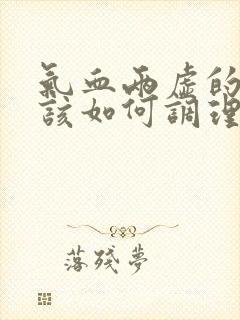 氣血兩虛的
該如何調理
落殘夢